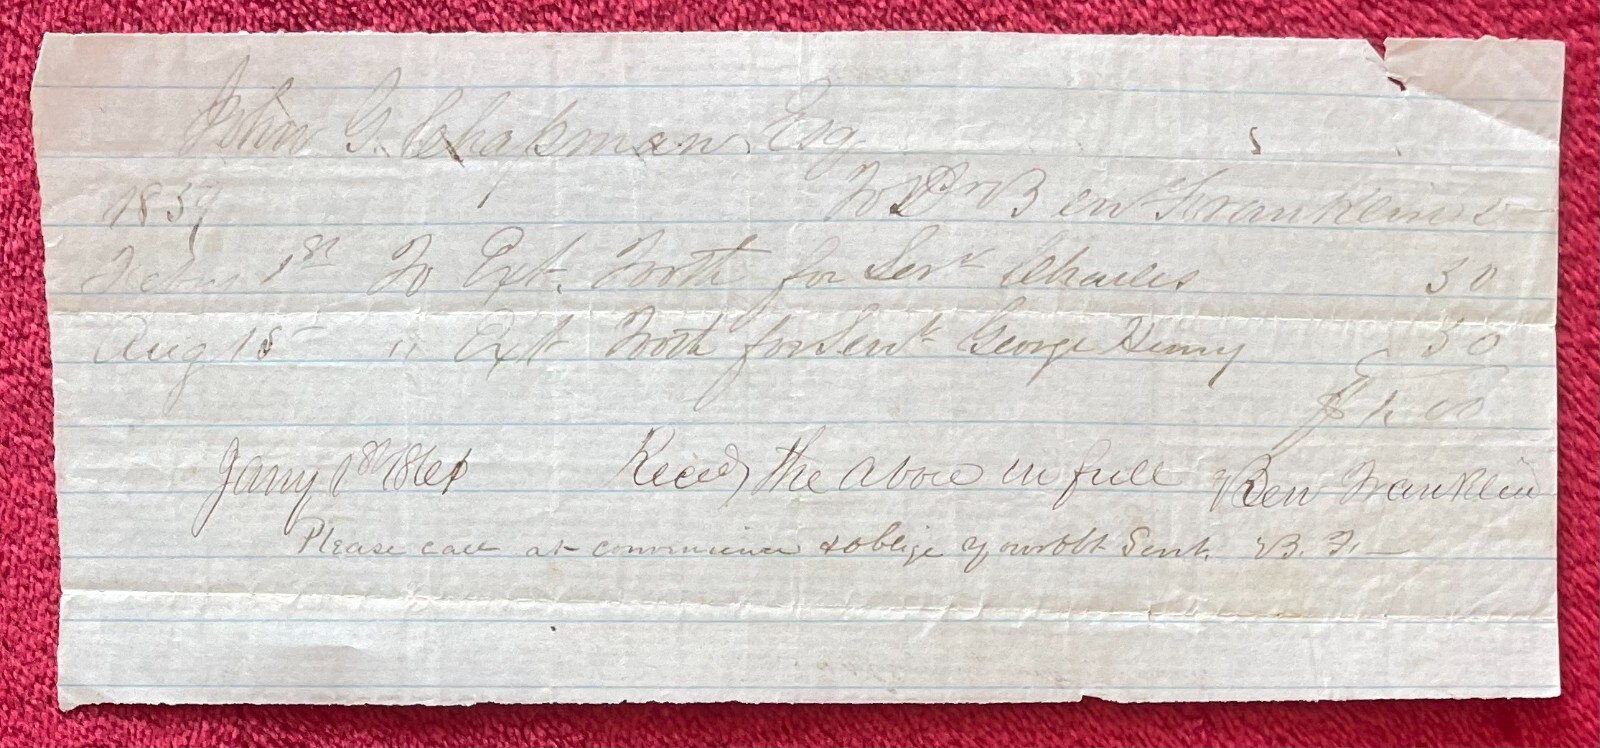 John G. Chapman Esq
1859 To Dr Ben Franklin
Feby 1st To Ext. Tooth for Servt Charles 50
Aug 15 " Ext Tooth for Servt George Henry 50
$1.00
Jany 1st 1861 Recd the above in full Ben Franklin
Please call at convenience & oblige your obt Servt. B. F.